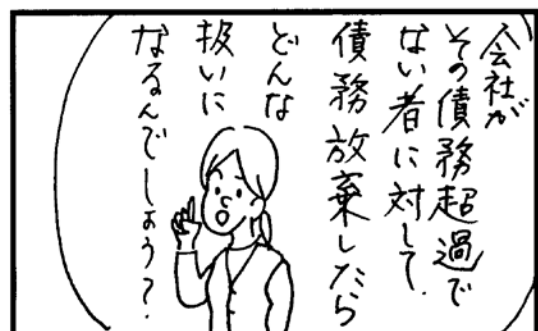 会社が
その債務超過で
ない者に対して、
債務放棄したら
どんな
扱いに
なるんでしょう?